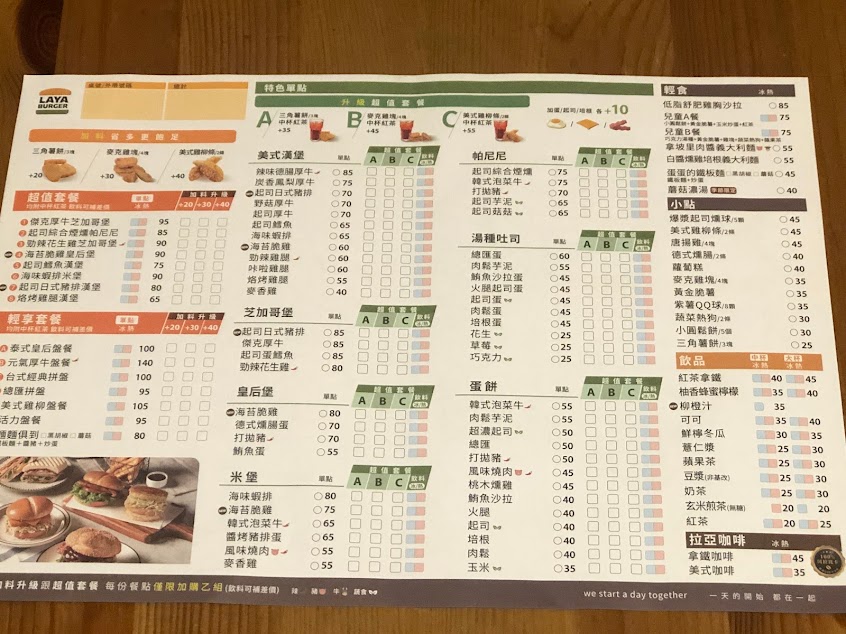 LAYA
BURGER
桌號/外帶號碼
總計
加料省多更飽足
三角薯餅/3塊
+20
麥克雞塊/4塊
+30
美式雞柳條/2條
+40
超值套餐
均附中杯紅茶 飲料可補差價
單點
冰 熱
加料升級
+20 +30 +40
傑克厚牛芝加哥堡 95
起司綜合煙燻帕尼尼 85
勁辣花生雞芝加哥堡 90
海苔脆雞皇后堡 90
起司鱈魚漢堡 75
海味蝦排米堡 90
起司日式豬排漢堡 80
烙烤雞腿漢堡 65
輕享套餐
均附中杯紅茶 飲料可補差價
單點
冰 熱
加料升級
+20 +30 +40
泰式皇后盤餐 100
元氣厚牛盤餐 140
台式經典拼盤 95
總匯拼盤 95
美式雞柳盤餐 105
活力盤餐 95
麵麵俱到 □黑胡椒 □蘑菇 80
鐵板麵+醬豬+炒蛋
特色單點
升級超值套餐
加蛋/起司/培根 各+10
A 三角薯餅/3塊 中杯紅茶 +35
B 麥克雞塊/4塊 中杯紅茶 +45
C 美式雞柳條/2條 中杯紅茶 +55
美式漢堡
單點
超值套餐
A B C 飲料 冰/熱
辣味德腸厚牛 85
炭香鳳梨厚牛 75
起司日式豬排 70
野菇厚牛 70
起司厚牛 70
起司鱈魚 65
海味蝦排 65
海苔脆雞 60
勁辣雞腿 60
咔啦雞腿 60
烙烤雞腿 55
麥香雞 40
芝加哥堡
單點
超值套餐
A B C 飲料 冰/熱
起司日式豬排 85
傑克厚牛 85
起司蛋鱈魚 85
勁辣花生雞 80
皇后堡
單點
超值套餐
A B C 飲料 冰/熱
海苔脆雞 80
德式燻腸蛋 70
打拋豬 70
鮪魚蛋 55
米堡
單點
超值套餐
A B C 飲料 冰/熱
海味蝦排 80
海苔脆雞 75
韓式泡菜牛 65
醬烤豬排蛋 65
風味燒肉 65
麥香雞 55
帕尼尼
單點
超值套餐
A B C 飲料 冰/熱
起司綜合煙燻 75
韓式泡菜牛 75
打拋豬 70
起司芋泥 65
起司菇菇 65
湯種吐司
單點
超值套餐
A B C 飲料 冰/熱
總匯蛋 60
肉鬆芋泥 55
鮪魚沙拉蛋 45
火腿起司蛋 45
起司蛋 45
肉鬆蛋 45
培根蛋 45
花生 25
草莓 25
巧克力 25
蛋餅
單點
超值套餐
A B C 飲料 冰/熱
韓式泡菜牛 55
肉鬆芋泥 55
超濃起司 50
總匯 50
打拋豬 50
風味燒肉 45
桃木燻雞 45
鮪魚沙拉 45
火腿 40
起司 40
培根 40
肉鬆 40
玉米 35
輕食 冰 熱
低脂舒肥雞胸沙拉 85
兒童A餐 75
小圓鬆餅+黃金脆薯+玉米炒蛋+紅茶
兒童B餐 75
拿坡里肉醬義大利麵 55
白醬燻雞培根義大利麵 55
蛋蛋的鐵板麵 □黑胡椒 □蘑菇 45
鐵板麵+炒蛋
蘑菇濃湯 季節限定 40
小點
爆漿起司燻球/5顆 45
美式雞柳條/2條 45
唐揚雞/4塊 45
德式燻腸/2條 40
蘿蔔糕 40
麥克雞塊/4塊 35
黃金脆薯 35
紫薯QQ球/8顆 35
蔬菜熱狗/2條 30
小圓鬆餅/5個 30
三角薯餅/3塊 25
飲品
中杯 冰 熱
大杯 冰 熱
紅茶拿鐵 40 45
柚香蜂蜜檸檬 35 40
柳橙汁 35
可可 35 40
鮮檸冬瓜 30 35
薏仁漿 25 30
蘋果茶 25 30
豆漿(非基改) 25 30
奶茶 25 30
玄米煎茶(無糖) 20 20
紅茶 20 25
拉亞咖啡 冰 熱
拿鐵咖啡 45
美式咖啡 35
加料升級跟超值套餐 每份餐點 僅限加購乙組(飲料可補差價) 辣 豬 牛 蔬食
we start a day together
一天的開始 都在一起